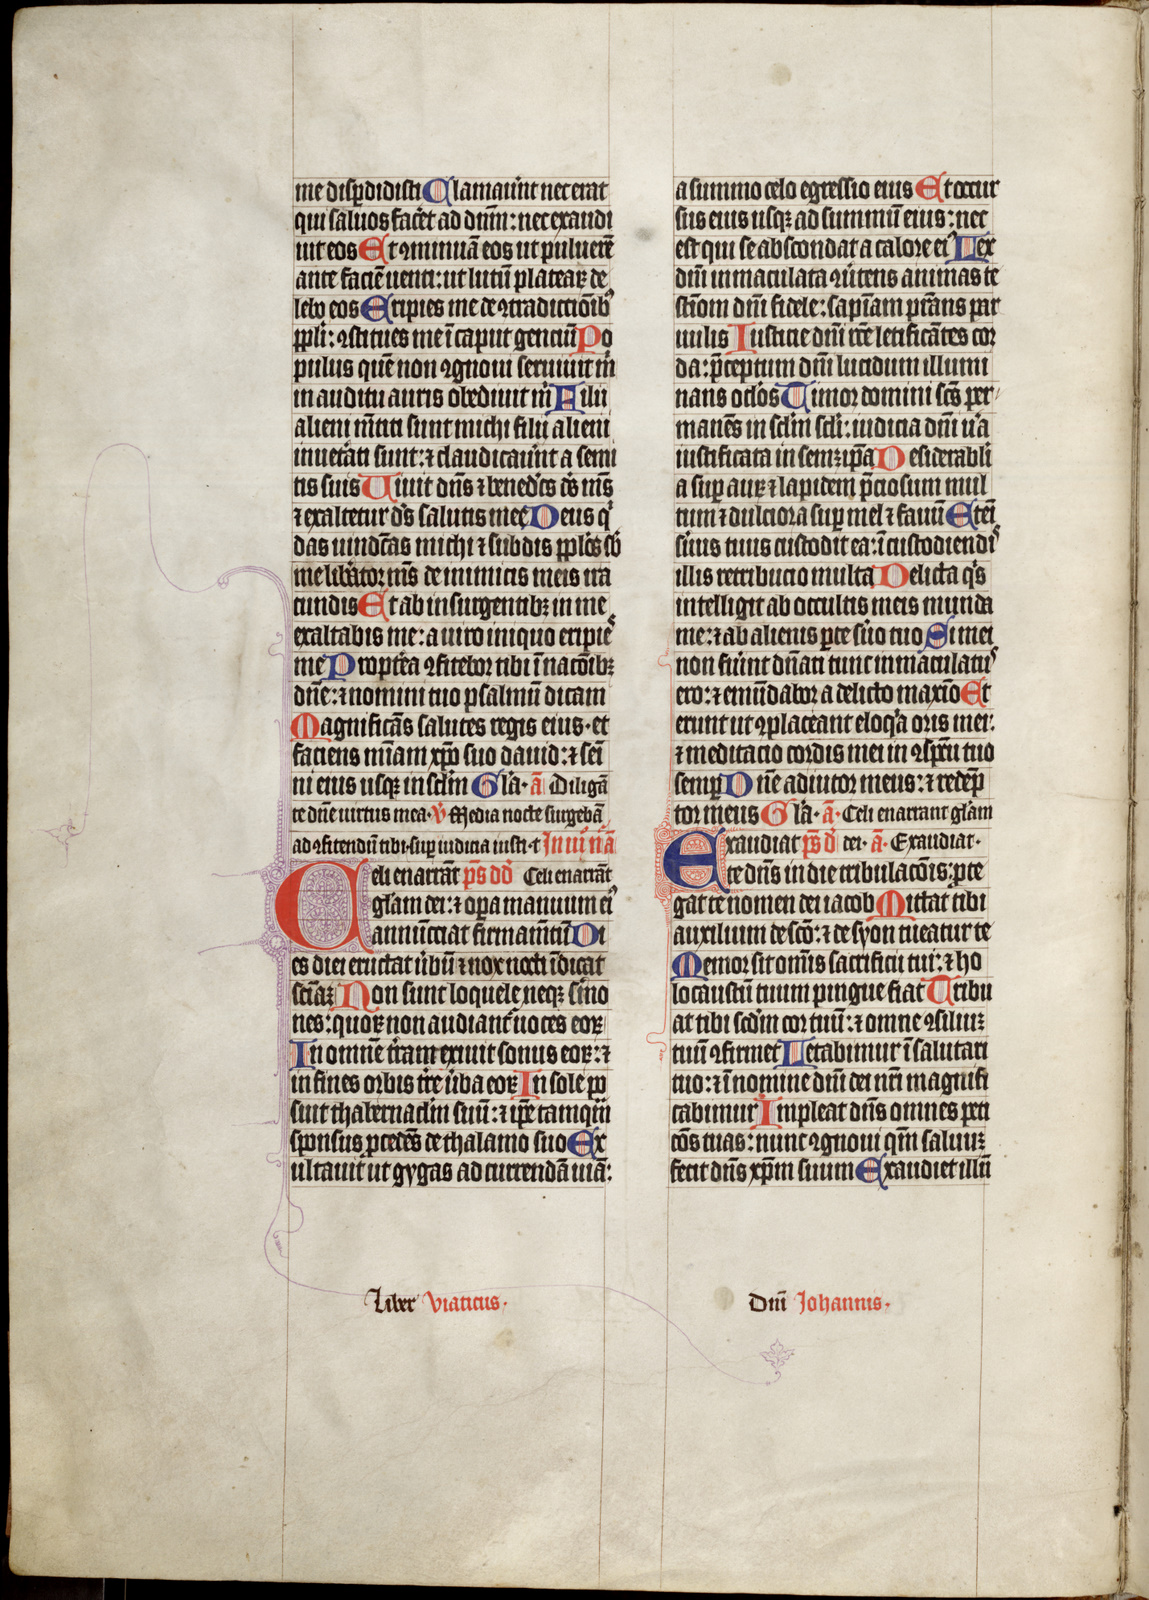 me disꝑdidisti Clamauͤnt nec erat
qui saluos facet ad dn̄m: nec exaudi
uit eos Et ꝯminuā eos ut puluerē
ante faciē uenti: ut lutū plateaꝝ de
lebo eos Eripies me de ꝯtradictiōibꝰ
ppl̄i: ꝯstitues me ī caput genciū Po
pulus quē non ꝯgnoui seruiuit m̄
in auditu auris obediuit m̄ Filii
alieni mētiti sunt michi filii alieni
inuet͛ati sunt: ⁊ claudicauͤnt a semi
tis suis Viuit dn̄s ⁊ bened̄cs d̄s m̄s
⁊ exaltetur d̄s salutis mee Deus qͥ
das uind̄cas michi ⁊ subdis ppl̄os sb̄
me lib͛ator m̄s de inimicis meis ira
cundis Et ab insurgentibꝫ in me
exaltabis me: a uiro iniquo eripiēˢ
me Propt͛ea ꝯfitebor tibi ī nacōibꝫ
dn̄e: ⁊ nomini tuo psalmū dicam
Magnificās salutes regis eius· et
faciens mīam xp̄o suo dauid: ⁊ sēī
ni eius usqꝫ in sc̄lm Gl̄a· a̅ Diligā
te dn̄e uirtus mea· ꝟ Media nocte surgebā
ad ꝯfitendū tibi· suꝑ iudicia iusti· t In iii n̄a
Celi enarrāt ps̄ dd̄ Celi enarrāt
gl̄am dei: ⁊ oꝑa manuum eiꝰ
annūcciat firmam̄tū Di
es diei eructat ūbū ⁊ nox nocti īdicat
scīaꝫ Non sunt loquele neqꝫ s͛mo
nes: quoꝝ non audiant͛ uoces eoꝝ
In omnē t͛ram exiuit sonus eoꝝ: ⁊
in fines orbis t͛re ūba eoꝝ In sole po
suit thabernac̄lm suū: ⁊ ip̄e tamqm̄
sponsus ꝓcedēs de thalamo suo Ex
ultauit ut gygas ad currendā uiā:
a summo celo egressio eius Et occur
sus eius usqꝫ ad summū eius: nec
est qui se abscondat a calore eiꝰ Lex
dn̄i inmaculata ꝯūtens animas te
stīom dn̄i fidele: sapīam p͛stans par
uulis Iusticie dn̄i rēe letificātes cor
da: p̄ceptum dn̄i lucidum illumi
nans oc̄los Timor domini sc̄s per
manēs in sc̄lm sc̄li: iudicia dn̄i u͛a
iustificata in semꝫipā Desiderabli
a suꝑ auꝝ ⁊ lapidem p̄ciosum mul
tum ⁊ dulciora suꝑ mel ⁊ fauū Eteī
s͛uus tuus custodit ea: ī custodiendiˢ
illis retribucio multa Delicta qͥs
intelligit ab occultis meis munda
me: ⁊ ab alienis ꝑce s͛uo tuo Si mei
non fuͤint dn̄ati tunc inmaculatuˢ
ero: ⁊ emūdabor a delicto maxīo Et
erunt ut ꝯplaceant eloqͥa oris mei:
⁊ meditacio cordis mei in ꝯspc̄u tuo
semꝑ Dn̄e adiutor meus: ⁊ redēp
tor meus Gl̄a· a̅· Celi enarrant gl̄am
Exaudiat ps̄ d̄ dei· a̅· Exaudiat·
te dn̄s in die tribulacōis: ꝓte
gat te nomen dei iacob Mittat tibi
auxilium de sc̄o: ⁊ de syon tueatur te
Memor sit om̄is sacrificii tui: ⁊ ho
locaustū tuum pingue fiat Tribu
at tibi sc̄dm cor tuū: ⁊ omne ꝯsiliuꝫ
tuū ꝯfirmet Letabimur ī salutari
tuo: ⁊ ī nomine dn̄i dei nr̄i magnifi
cabimur Impleat dn̄s omnes peti
cōs tuas: nunc ꝯgnoui qm̄ saluuꝫ
fecit dn̄s xp̄m suum Exaudiet illū
Liber Viaticus·
Dn̄i Johannis·